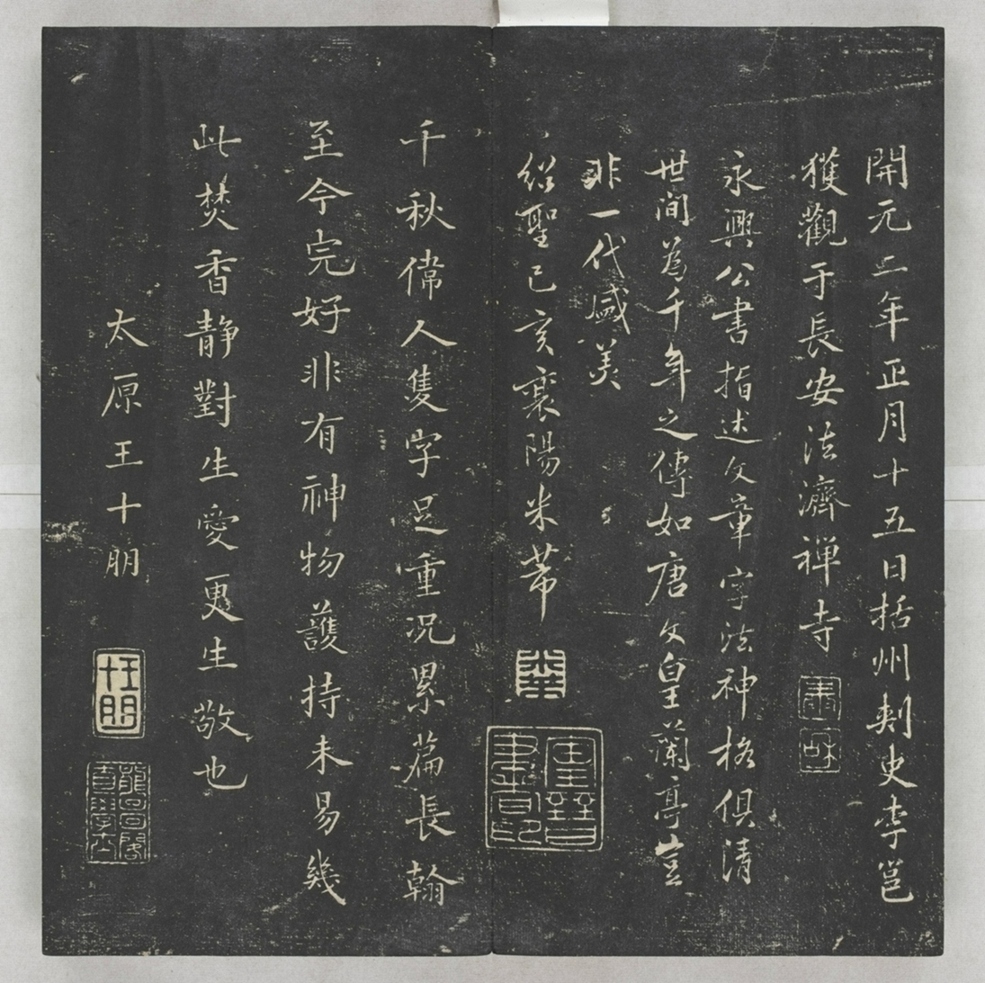 開元二年正月十五日括州刺史李邕
獲觀于長安法濟禪寺
永興公書指述文章字法神格俱清
世間為千年之傳如唐文皇蘭亭豈
非一代盛美
紹聖己亥襄陽米芾
千秋偉人隻字足重況累篇長翰
至今完好非有神物護持未易幾
此焚香靜對生愛更生敬也
太原王十朋